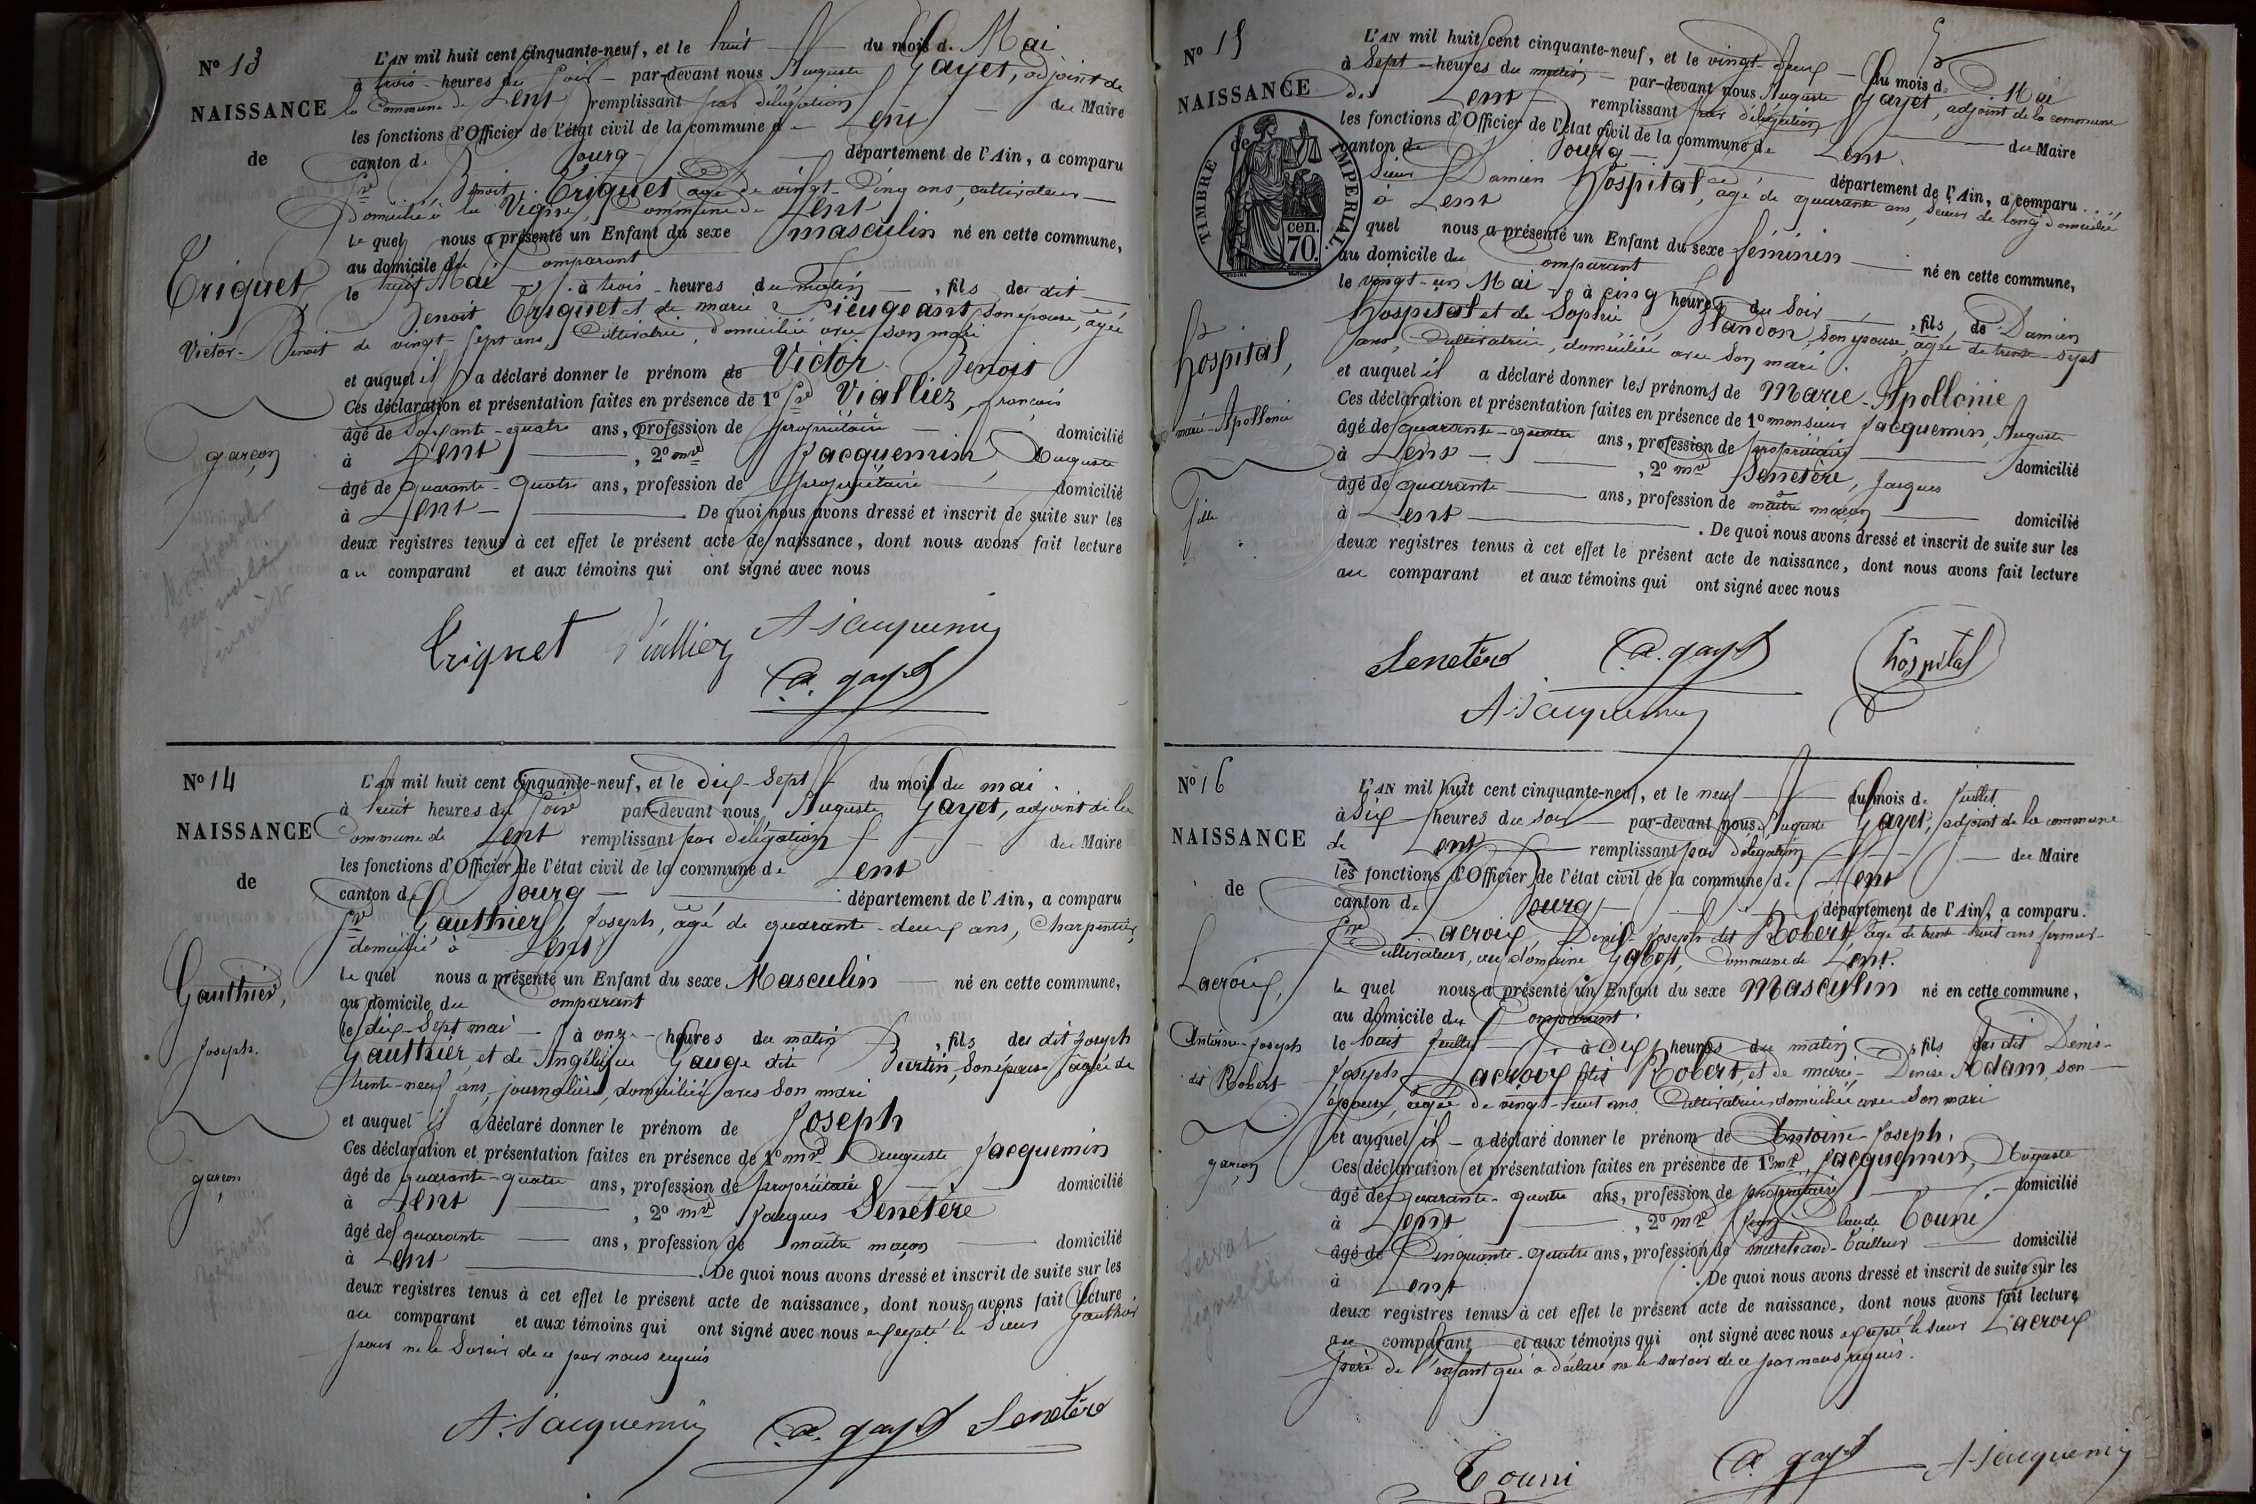 Nº 13
NAISSANCE
de
Triquet
Victor-Benoit
garçon
L'AN mil huit cent cinquante-neuf, et le huit du mois d. Mai
à trois heures du soir par-devant nous Auguste Gayet, adjoint de
la Commune de Lent remplissant par délégation du Maire
les fonctions d'Officier de l'état civil de la commune d. Lent
canton d. Bourg département de l'Ain, a comparu
Sr Benoit Triquet âgé de vingt-cinq ans, cultivateur
domicilié à la Vigne, Commune de Lent
le quel nous a présenté un Enfant du sexe masculin né en cette commune,
au domicile du comparant
le huit Mai à trois heures du matin, fils du dit
Benoit Triquet et de marie son épouse, âgée
de vingt-sept ans, Cultivatrice, domiciliée avec son mari
et auquel il a déclaré donner le prénom de Victor Benoit
Ces déclaration et présentation faites en présence de 1º Sr Vialliez, françois
âgé de soixante-quatre ans, profession de propriétaire domicilié
à Lent, 2º mr Jacquemin, Auguste
âgé de quarante-quatre ans, profession de propriétaire domicilié
à Lent De quoi nous avons dressé et inscrit de suite sur les
deux registres tenus à cet effet le présent acte de naissance, dont nous avons fait lecture
au comparant et aux témoins qui ont signé avec nous
Triquet Vialliez A. Jacquemin
A. gayet
Nº 14
NAISSANCE
de
Gauthier,
Joseph.
garçon
L'AN mil huit cent cinquante-neuf, et le dix-sept du mois du mai
à huit heures du soir par-devant nous Auguste Gayet, adjoint de la
Commune de Lent remplissant par délégation du Maire
les fonctions d'Officier de l'état civil de la commune d. Lent
canton d. Bourg département de l'Ain, a comparu
Sr Gauthier, Joseph, âgé de quarante-deux ans, Charpentier,
domicilié à Lent
le quel nous a présenté un Enfant du sexe Masculin né en cette commune,
au domicile du comparant
le dix-sept mai à onze heures du matin, fils du dit Joseph
Gauthier, et de Angélique Gauge dite Burtin, son épouse, âgée de
trente-neuf ans, journalière, domiciliée avec son mari
et auquel il a déclaré donner le prénom de Joseph
Ces déclaration et présentation faites en présence de 1º mr Auguste Jacquemin
âgé de quarante-quatre ans, profession de propriétaire domicilié
à Lent, 2º mr Jacques Senetère
âgé de quarante ans, profession de maître maçon domicilié
à Lent. De quoi nous avons dressé et inscrit de suite sur les
deux registres tenus à cet effet le présent acte de naissance, dont nous avons fait lecture
au comparant et aux témoins qui ont signé avec nous excepté le Sieur Gauthier
pour ne le savoir de ce par nous requis
A. Jacquemin A. gayet Senetère
Nº 15
NAISSANCE
de
TIMBRE IMPERIAL.
70 cen.
hospital,
marie-Apollonie
fille
L'AN mil huit cent cinquante-neuf, et le vingt-deux du mois d. Mai
à Sept heures du matin par-devant nous Auguste Gayet, adjoint de la commune
de Lent remplissant par délégation du Maire
les fonctions d'Officier de l'état civil de la commune de Lent
canton de Bourg département de l'Ain, a comparu
Sieur Damien hospital, âgé de quarante ans, scieur de long, domicilié
à Lent
quel nous a présenté un Enfant du sexe féminin né en cette commune,
au domicile du comparant
le vingt-un Mai à cinq heures du soir, fils de Damien
hospital et de Sophie son épouse, âgée de trente-sept
ans, Cultivatrice, domiciliée avec son mari.
et auquel il a déclaré donner les prénoms de Marie-Apollonie
Ces déclaration et présentation faites en présence de 1º monsieur Jacquemin, Auguste
âgé de quarante-quatre ans, profession de propriétaire domicilié
à Lent, 2º mr Senetère, Jacques
âgé de quarante ans, profession de maître maçon domicilié
à Lent. De quoi nous avons dressé et inscrit de suite sur les
deux registres tenus à cet effet le présent acte de naissance, dont nous avons fait lecture
au comparant et aux témoins qui ont signé avec nous
Senetère A. gayet hôspital
A. Jacquemin
Nº 16
NAISSANCE
de
Lacroix,
Antoine-Joseph
dit Robert
garçon
L'AN mil huit cent cinquante-neuf, et le neuf du mois d. Juillet
à six heures du soir par-devant nous Auguste Gayet, adjoint de la commune
de Lent remplissant par délégation du Maire
les fonctions d'Officier de l'état civil de la commune d. Lent
canton d. Bourg département de l'Ain, a comparu.
Sr Lacroix, Denis-Joseph dit Robert, âgé de trente-huit ans fermier-
Cultivateur, au domaine Commune de Lent.
le quel nous a présenté un Enfant du sexe Masculin né en cette commune,
au domicile du Comparant.
le huit Juillet à dix heures du matin, fils du dit Denis-
Joseph Lacroix dit Robert, et de marie-Denise Adam, son
épouse, âgée de vingt-huit ans, Cultivatrice, domiciliée avec son mari
et auquel il a déclaré donner le prénom de Antoine-Joseph.
Ces déclaration et présentation faites en présence de 1º mr Jacquemin, Auguste
âgé de quarante-quatre ans, profession de propriétaire domicilié
à Lent, 2º mr Jean Claude Touni
âgé de Cinquante-quatre ans, profession de marchand-tailleur domicilié
à Lent. De quoi nous avons dressé et inscrit de suite sur les
deux registres tenus à cet effet le présent acte de naissance, dont nous avons fait lecture
au comparant et aux témoins qui ont signé avec nous excepté le sieur Lacroix
père de l'enfant qui a déclaré ne le savoir de ce par nous requis.
Touni A. gayet A. Jacquemin